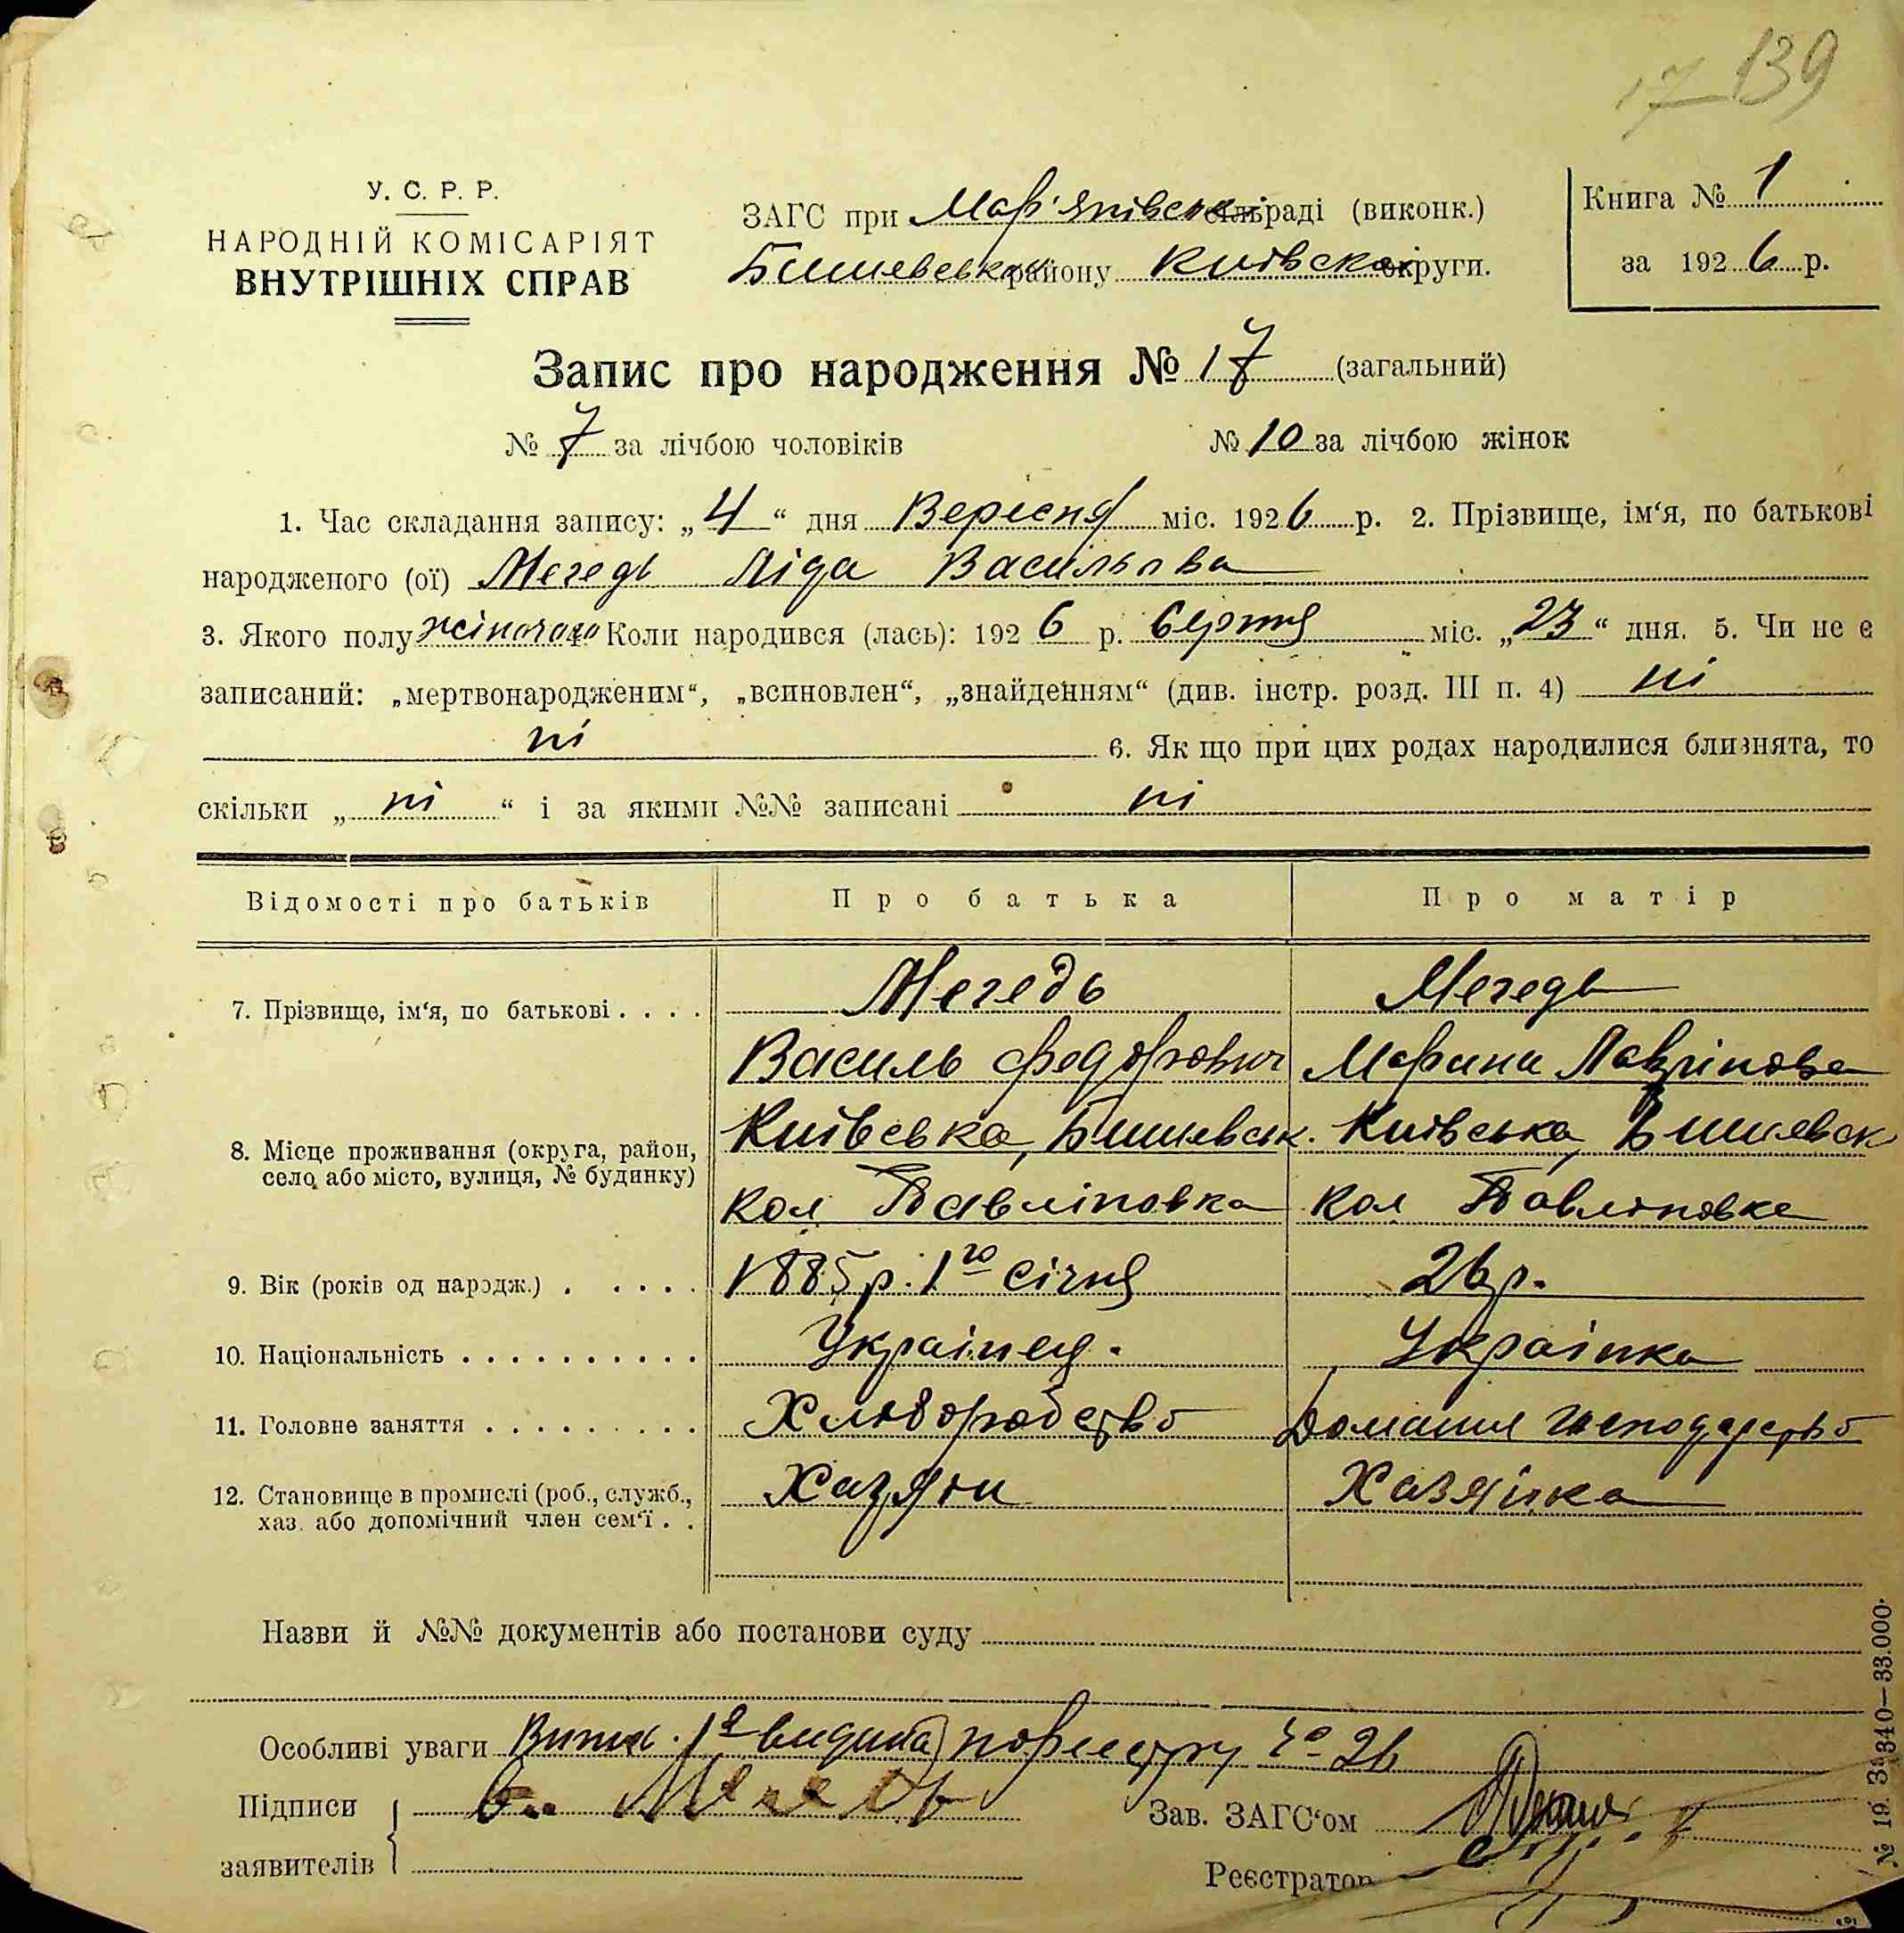 17 139
У. С. Р. Р.
НАРОДНІЙ КОМІСАРІЯТ
ВНУТРІШНІХ СПРАВ
ЗАГС при Мар'янівськ сільраді (виконк.)
Бишевськом району Київська округи.
Книга № 1
за 1926 р.
Запис про народження № 17 (загальний)
№ 7 за лічбою чоловіків № 10 за лічбою жінок
1. Час складання запису: „4“ дня Вересня міс. 1926 р. 2. Прізвище, ім‘я, по батькові
народженого (ої) Мегедь Ліда Васильова
3. Якого полу жіночого Коли народився (лась): 1926 р. Серпня міс. „23“ дня. 5. Чи не є
записаний: „мертвонародженим“, „всиновлен“, „знайденням“ (див. інстр. розд. III п. 4) ні
ні 6. Як що при цих родах народилися близнята, то
скільки „ ні “ і за якими №№ записані ні
Відомості про батьків Про батька Про матір
7. Прізвище, ім‘я, по батькові . . . . Мегедь Мегедь
Василь Федорович Марина Лаврінова
8. Місце проживання (округа, район, Київська, Бишевськ. Київська, Бишевськ
село, або місто, вулиця, № будинку)
кол Павліновка кол Павліновка
9. Вік (років од народж.) . . . . . 1885 р. 1го січня 26 р.
10. Національність . . . . . . . . . . Українец. Українка
11. Головне заняття . . . . . . . . . Хліборобство Домашне господарство
12. Становище в промислі (роб., служб., Хазяін Хазяйка
хаз. або допомічний член сем‘ї . .
Назви й №№ документів або постанови суду
Особливі уваги по реестру № 26
Підписи
Зав. ЗАГС‘ом
заявителів
Реєстратор
№ 19. Зак. 340—33.000.